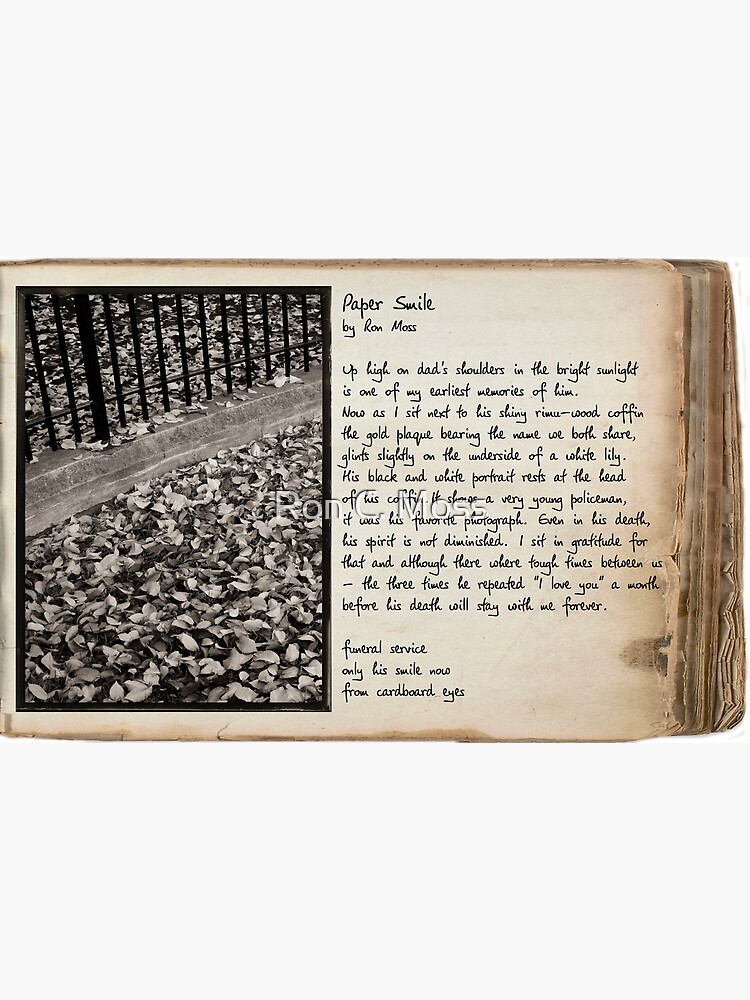 Paper Smile
by Ron Moss
Up high on dad's shoulders in the bright sunlight
is one of my earliest memories of him.
Now as I sit next to his shiny rimu-wood coffin
the gold plaque bearing the name we both share,
glints slightly on the underside of a white lily.
His black and white portrait rests at the head
of his coffin. It shows a very young policeman,
Ron C. Moss
it was his favorite photograph. Even in his death,
his spirit is not diminished. I sit in gratitude for
that and although there where tough times between us
– the three times he repeated "I love you" a month
before his death will stay with me forever.
funeral service
only his smile now
from cardboard eyes